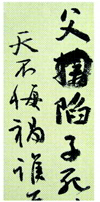 父陷子死
天不悔禍誰